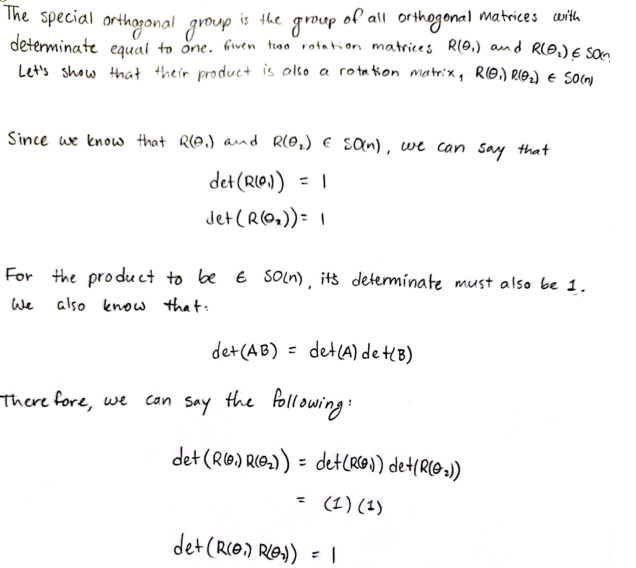 The special orthogonal group is the group of all orthogonal matrices with
determinate equal to one. Given two rotation matrices R(θ₁) and R(θ₂) ∈ SO(n)
Let's show that their product is also a rotation matrix, R(θ₁) R(θ₂) ∈ SO(n)
Since we know that R(θ₁) and R(θ₂) ∈ SO(n), we can say that
det(R(θ₁)) = 1
det(R(θ₂)) = 1
For the product to be ∈ SO(n), its determinate must also be 1.
We also know that:
det(AB) = det(A) det(B)
Therefore, we can say the following:
det(R(θ₁) R(θ₂)) = det(R(θ₁)) det(R(θ₂))
= (1)(1)
det(R(θ₁) R(θ₂)) = 1